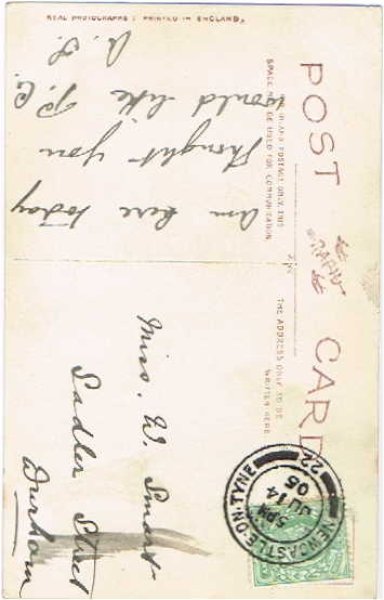 POST CARD
RAPID
FOR INLAND POSTAGE ONLY, THIS
SPACE MAY BE USED FOR COMMUNICATION
THE ADDRESS ONLY TO BE
WRITTEN HERE
am here today
Thought you
would like P.C.
A. S
Miss. W. Smart
Sadler Street
Durham
NEWCASTLE-ON-TYNE
5 PM
JU 14
05
22
REAL PHOTOGRAPHS: PRINTED IN ENGLAND.